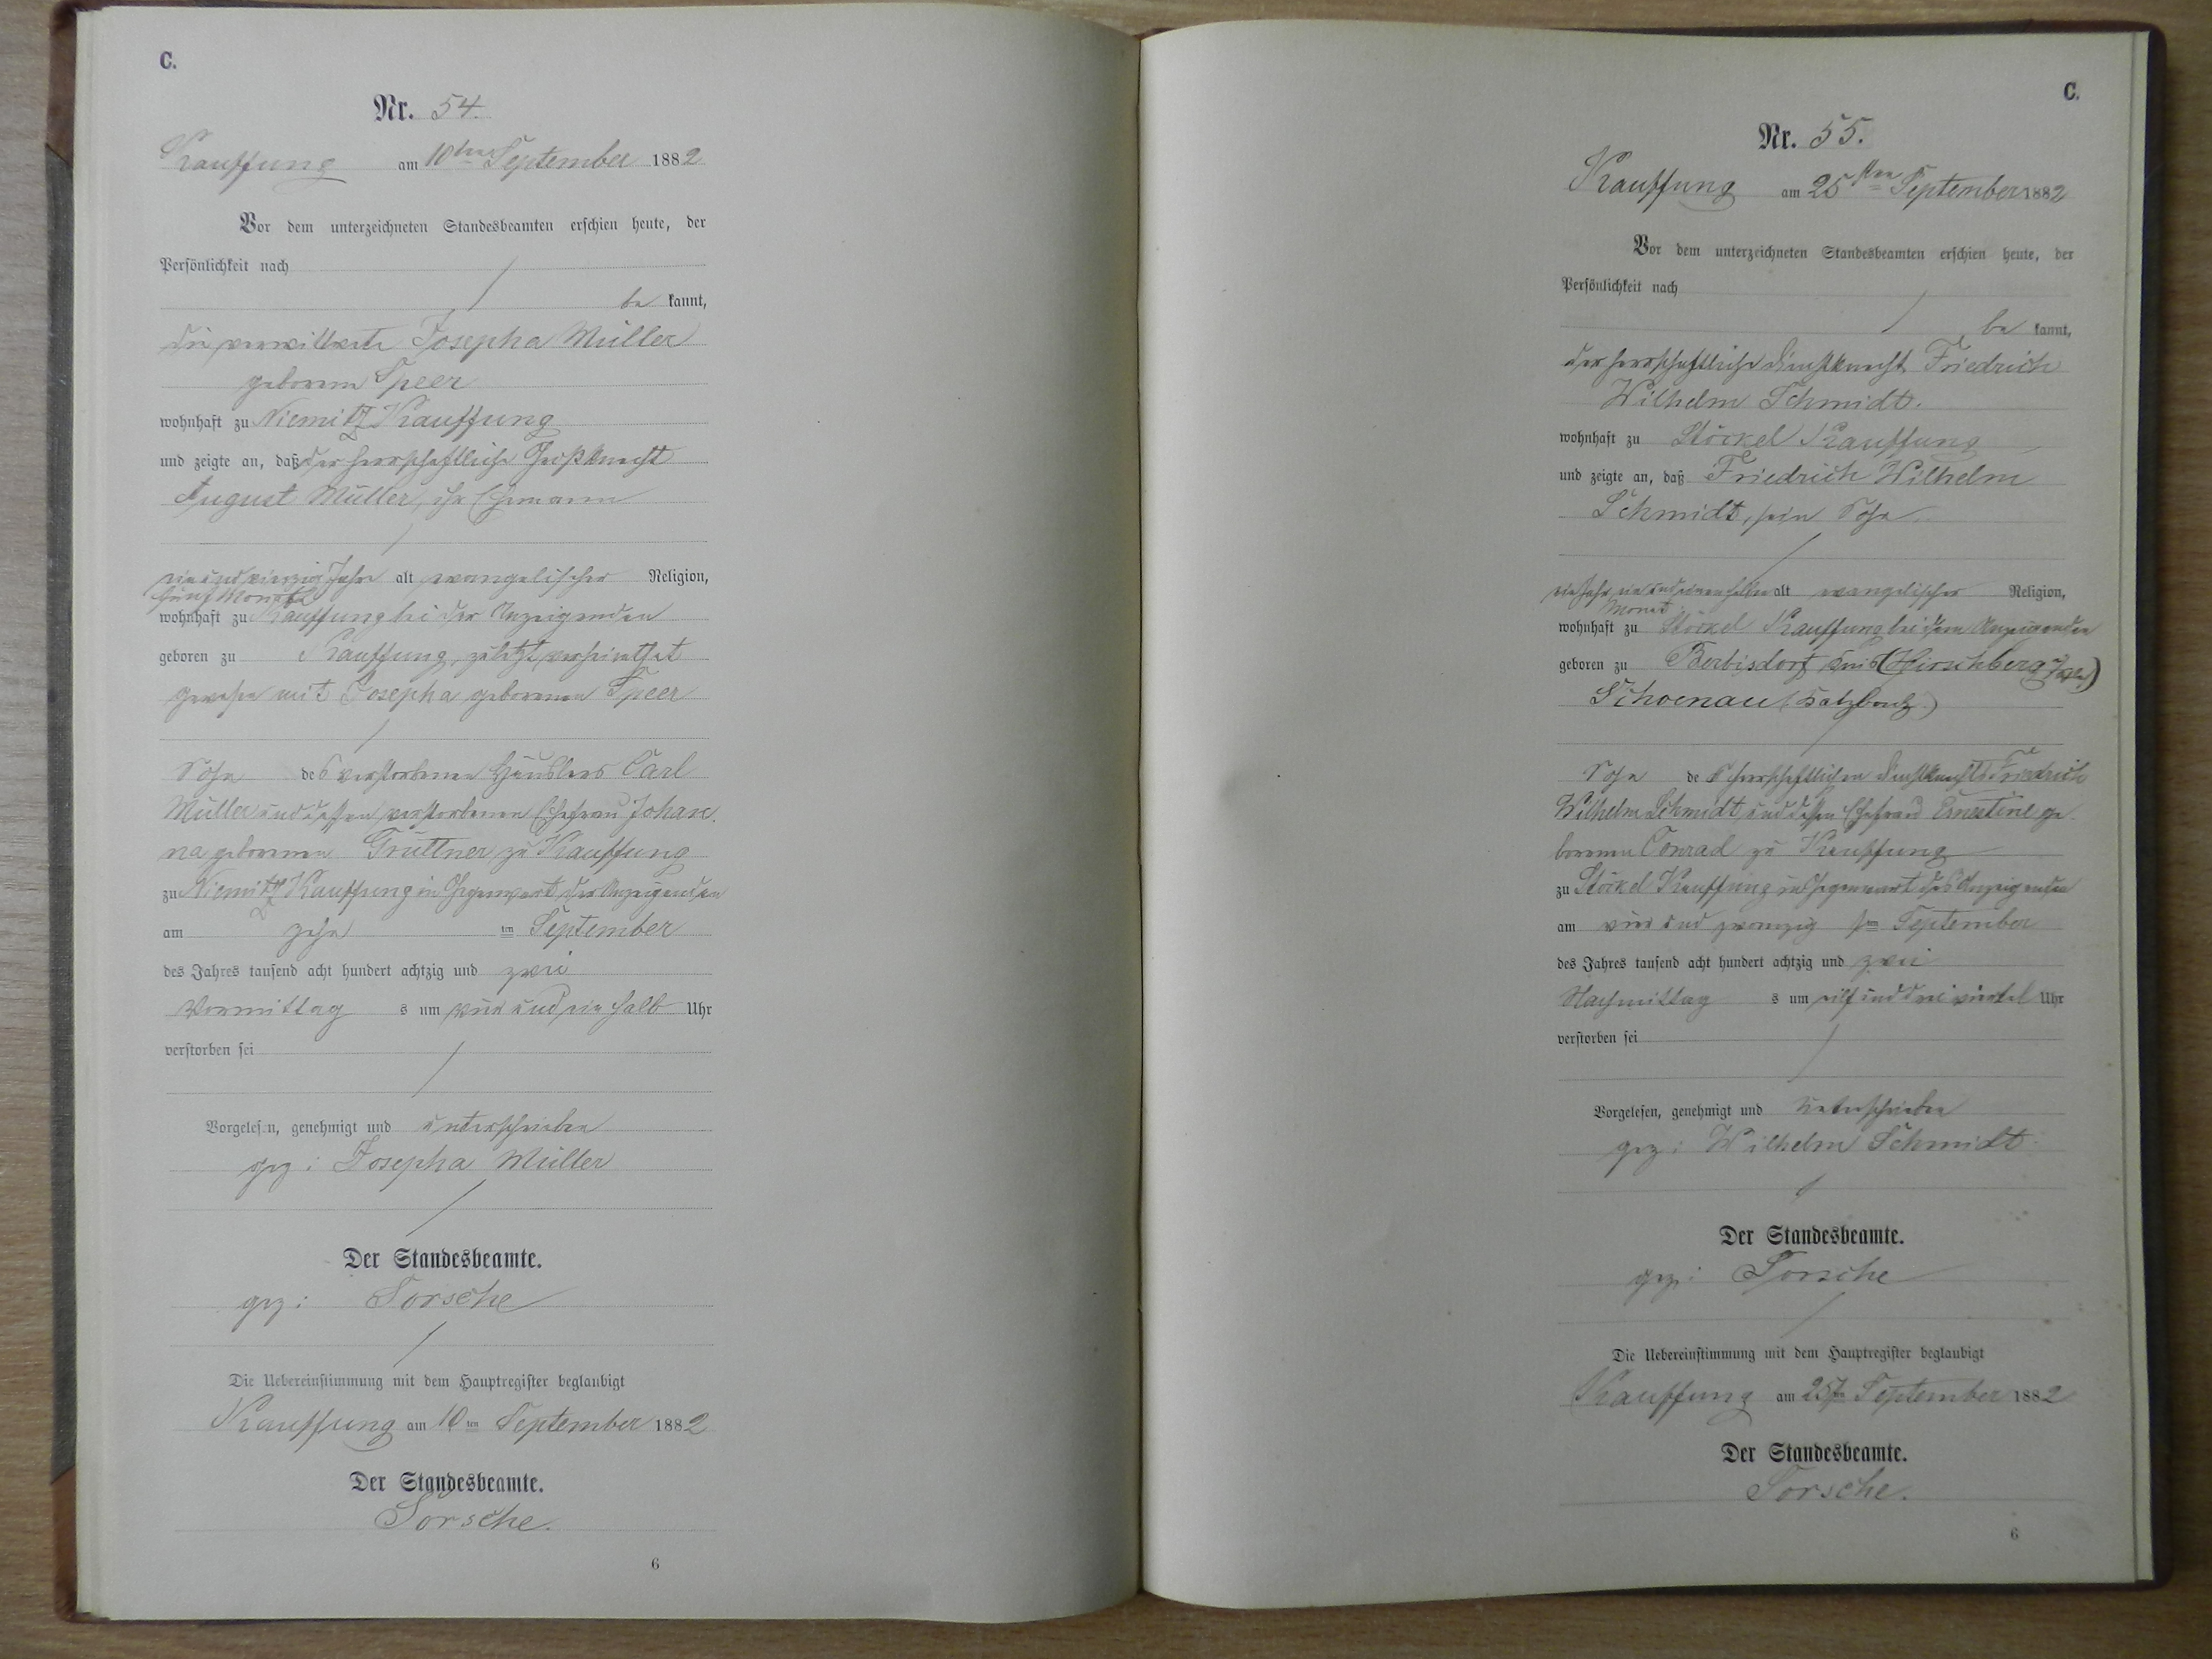 C.
Nr. 54.
Kauffung am 10ten September 1882
Vor dem unterzeichneten Standesbeamten erschien heute, der
Persönlichkeit nach
be kannt,
die verwittwete Josepha Müller
geborene Speer
wohnhaft zu Niemitz Kauffung
und zeigte an, daß der herrschaftliche Großknecht
August Müller, ihr Ehemann
ein und vierzig Jahre alt evangelischer Religion,
fünf Monate
wohnhaft zu Kauffung bei der Anzeigenden
geboren zu Kauffung, zuletzt verheirathet
gewesen mit Josepha geborenen Speer
Sohn des verstorbenen Häuslers Carl
Müller und dessen verstorbenen Ehefrau Johan-
na geborenen Grüttner zu Kauffung
zu Niemitz Kauffung in Gegenwart der Anzeigenden
am zehn ten September
des Jahres tausend acht hundert achtzig und zwei
Vormittag s um vier und ein halb Uhr
verstorben sei
Vorgelesen, genehmigt und unterschrieben
gez: Josepha Müller
Der Standesbeamte.
gez: Sorsche
Die Uebereinstimmung mit dem Hauptregister beglaubigt
Kauffung am 10ten September 1882
Der Standesbeamte.
Sorsche.
6
C.
Nr. 55.
Kauffung am 25sten September 1882
Vor dem unterzeichneten Standesbeamten erschien heute, der
Persönlichkeit nach
be kannt,
der herrschaftliche Dienstknecht Friedrich
Wilhelm Schmidt.
wohnhaft zu Stöckel Kauffung
und zeigte an, daß Friedrich Wilhelm
Schmidt, sein Sohn
ein Jahr, ein und einen halben alt evangelischer Religion,
Monat
wohnhaft zu Stöckel Kauffung bei dem Anzeigenden
geboren zu Berbisdorf Kreis (Hirschberg
Schoenau (Katzbach)
Sohn des herrschaftlichen Dienstknechts Friedrich
Wilhelm Schmidt und dessen Ehefrau Ernestine ge-
borenen Conrad zu Kauffung
zu Stöckel Kauffung in Gegenwart des Anzeigenden
am vier und zwanzig sten September
des Jahres tausend acht hundert achtzig und zwei
Nachmittag s um eilf und drei viertel Uhr
verstorben sei
Vorgelesen, genehmigt und unterschrieben
gez: Wilhelm Schmidt
Der Standesbeamte.
gez: Sorsche
Die Uebereinstimmung mit dem Hauptregister beglaubigt
Kauffung am 25sten September 1882
Der Standesbeamte.
Sorsche.
6